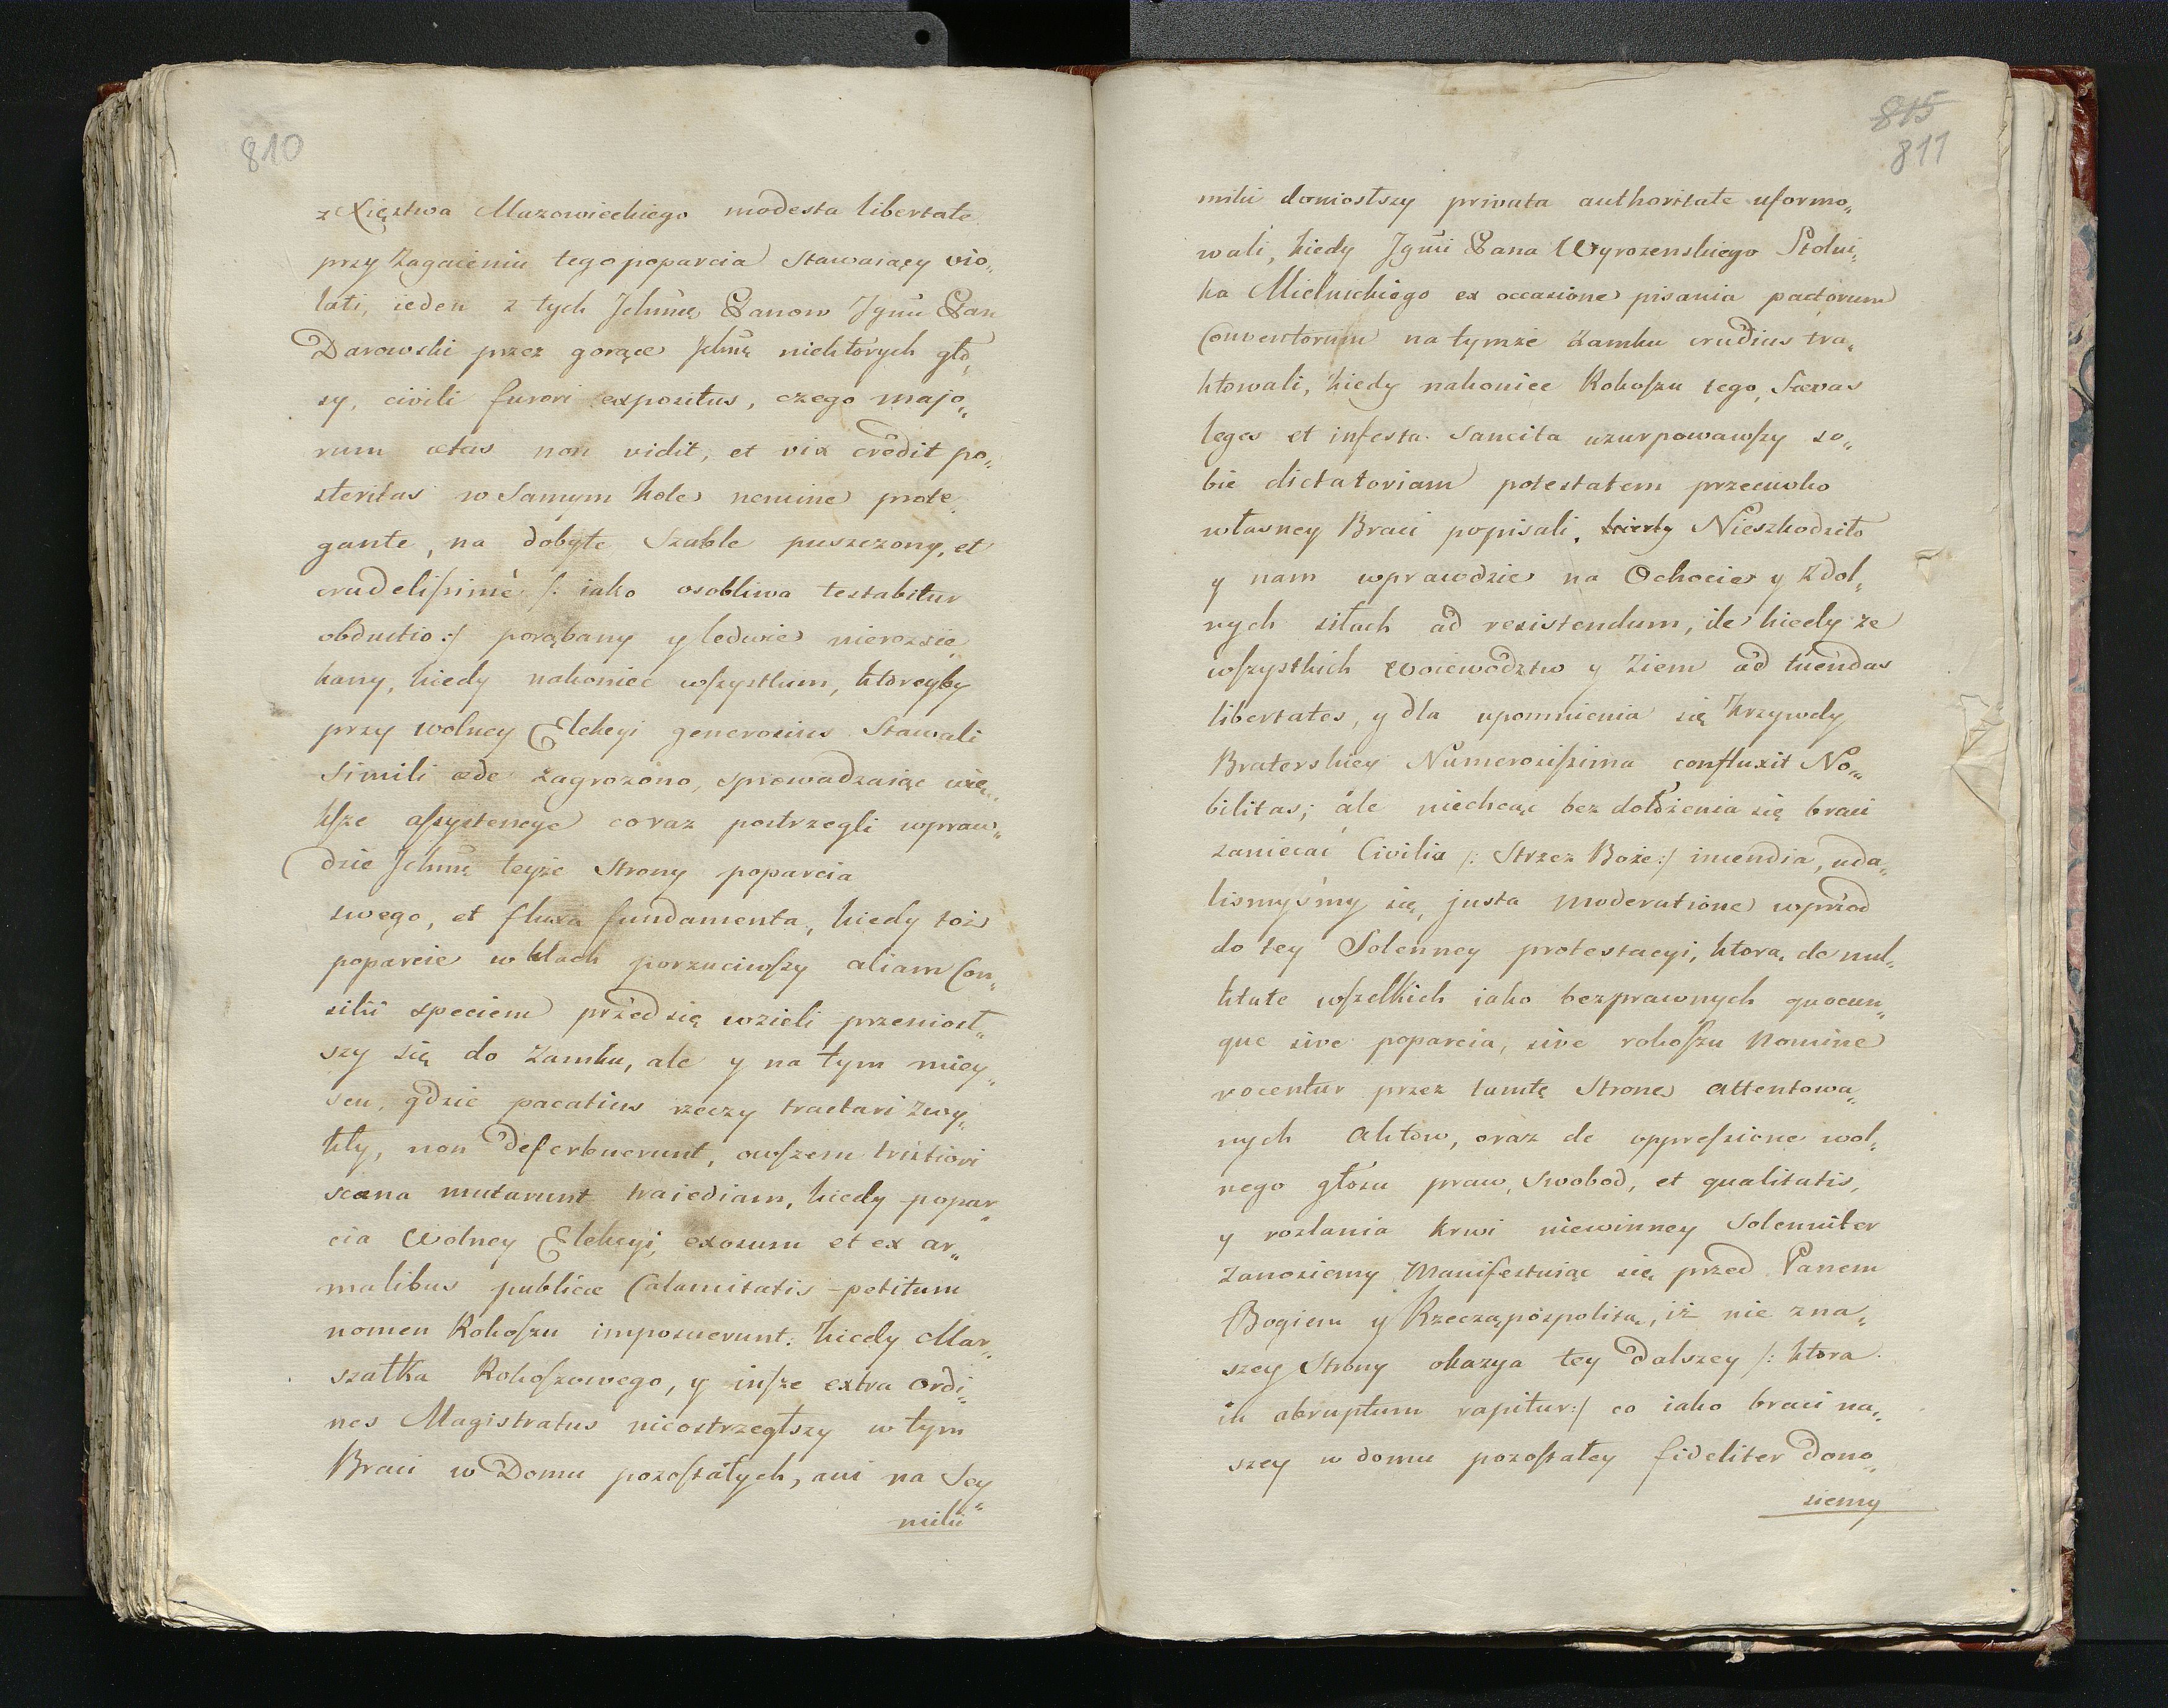 810
z Xięstwa Mazowieckiego modesta libertate
przy Zagaieniu tego poparcia stawaiący vio„
lati, ieden z tych Jchmcę Panow Jgmći Pan
Darowski przez gorące Jchmę niektórych gło„
sy, civili furori expositus, czego majo„
rum ætas non vidit, et vix credit po„
steritas w samym kole nemine prote„
gante, na dobyte Szable puszczony, et
crudelissimè /: iako osobliwa testabitur
obductio :/ porąbany y ledwie nierozsie„
kany, kiedy nakoniec wszystkim, ktoryby
przy wolney Elekcyi generosius Stawali
Simili æde zagrożono, sprowadzaiąc wię„
ksze assystencye coraz postrzegli wpraw„
dzie Jchmę teyże Strony poparcia
swego, et fluxa fundamenta, kiedy toż
poparcie w kłach porzuciwszy aliam Con„
silii speciem przed się wzieli przeniost„
szy się do Zamku, ale y na tym miey„
scu, gdzie pacatius rzeczy tractari zwy„
kły, non deferbuerunt, owszem tristiori
scæna mutarunt traiediam, kiedy popar„
cia Wolney Elekcyi, exosum et ex ar„
malibus publicæ Calamitatis petitum
nomen Rokoszu imposuerunt: kiedy Mar„
szałka Rokoszowego, y insze extra ordi„
nes Magistratus nieostrzegłszy w tym
Braci w Domu pozostałych, ani na Sey„
miki
815
811
miki doniosłszy privata authoritate uformo„
wali, kiedy Jgmći Pana Wyrozenskiego Stolni„
ka Mielnickiego ex occasione pisania pactorum
Conventorum na tymże Zamku crudius tra„
ktowali, kiedy nakoniec Rokoszu tego, Sævas
leges et infesta Sancita uzurpowawszy so„
bie dictatoriam potestatem przeciwko
własney Braci popisali, kiedy Nieszkodziło
y nam wprawdzie na Ochocie y zdol„
nych siłach ad resistendum, ile kiedy ze
wszystkich Woiewodztw y Ziem ad tuendas
libertates, y dla upomnienia się Krzywdy
Braterskiey Numerosissima confluxit No„
bilitas; ále niechcąc bez dołożenia się braci
zaniecać Civilia /: Strzez Boże :/ incendia, uda„
lismyśmy się justa moderatione wprzód
do tey Solenney protestacyi, ktorą de nul„
litate wszelkich iako bezprawnych quocun„
que sive poparcia, sive rokoszu Nomine
vocentur przez tamtę Stronę attentowa„
nych Aktów, oraz de oppressione wol„
nego głosu praw, Swobod, et qualitatis,
y rozlania krwi niewinney Solenniter
zanosiemy Manifestuiąc się przed Panem
Bogiem y Rzecząpospolitą, iż nie z na„
szey Strony okazya tey dalszey /: ktora
in abruptum rapitur :/ co iako braci na„
szey w domu pozostałey fideliter dono„
siemy